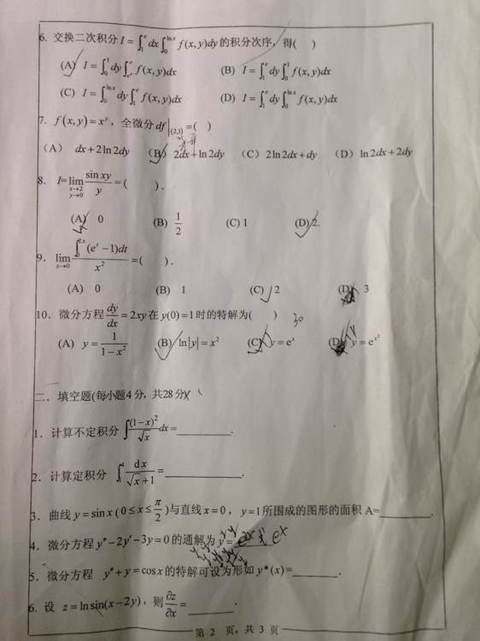 6. 交换二次积分 I = ∫₁ᵉ dx ∫₀^{lnx} f(x,y)dy 的积分次序，得( )
(A) I = ∫₀¹ dy ∫ f(x,y)dx (B) I = ∫₁ᵉ dy ∫₀¹ f(x,y)dx
(C) I = ∫₀^{lnx} dy ∫₁ᵉ f(x,y)dx (D) I = ∫₁ᵉ dy ∫₀^{lnx} f(x,y)dx
7. f(x,y) = x^y，全微分 df|(2,1) = ( )
(A) dx + 2ln2dy (B) 2dx + ln2dy (C) 2ln2dx + dy (D) ln2dx + 2dy
8. I = lim_{x→2, y→0} sin xy / y = ( ).
(A) 0 (B) 1/2 (C) 1 (D) 2.
9. lim_{x→0} ∫₀^{2x} (eᵗ − 1)dt / x² = ( ).
(A) 0 (B) 1 (C) 2 (D) 3
10. 微分方程 dy/dx = 2xy 在 y(0) = 1 时的特解为( )
(A) y = 1/(1−x²) (B) ln|y| = x² (C) y = eˣ (D) y = e^{x²}
二. 填空题(每小题4分，共28分)
1. 计算不定积分 ∫ (1−x)²/√x dx = ________.
2. 计算定积分 ∫₀⁴ dx/(√x + 1) = ________.
3. 曲线 y = sin x (0 ≤ x ≤ π/2) 与直线 x = 0， y = 1 所围成的图形的面积 A= ________.
4. 微分方程 y″ − 2y′ − 3y = 0 的通解为 y = ________
5. 微分方程 y″ + y = cos x 的特解可设为形如 y*(x) = ________.
6. 设 z = ln sin(x − 2y)，则 ∂z/∂x = ________.
第 2 页，共 3 页